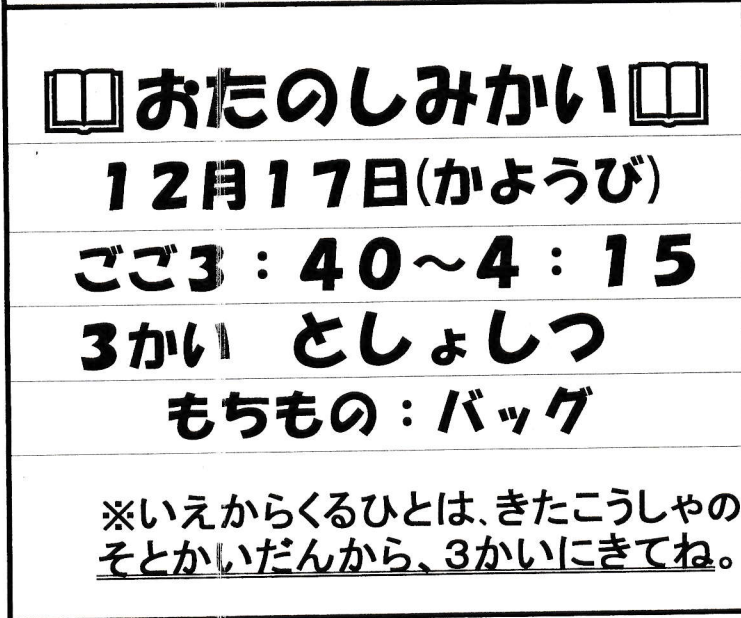 おたのしみかい
12月17日(かようび)
ごご3：40～4：15
3かい　としょしつ
もちもの：バッグ
※いえからくるひとは、きたこうしゃの
そとかいだんから、3かいにきてね。